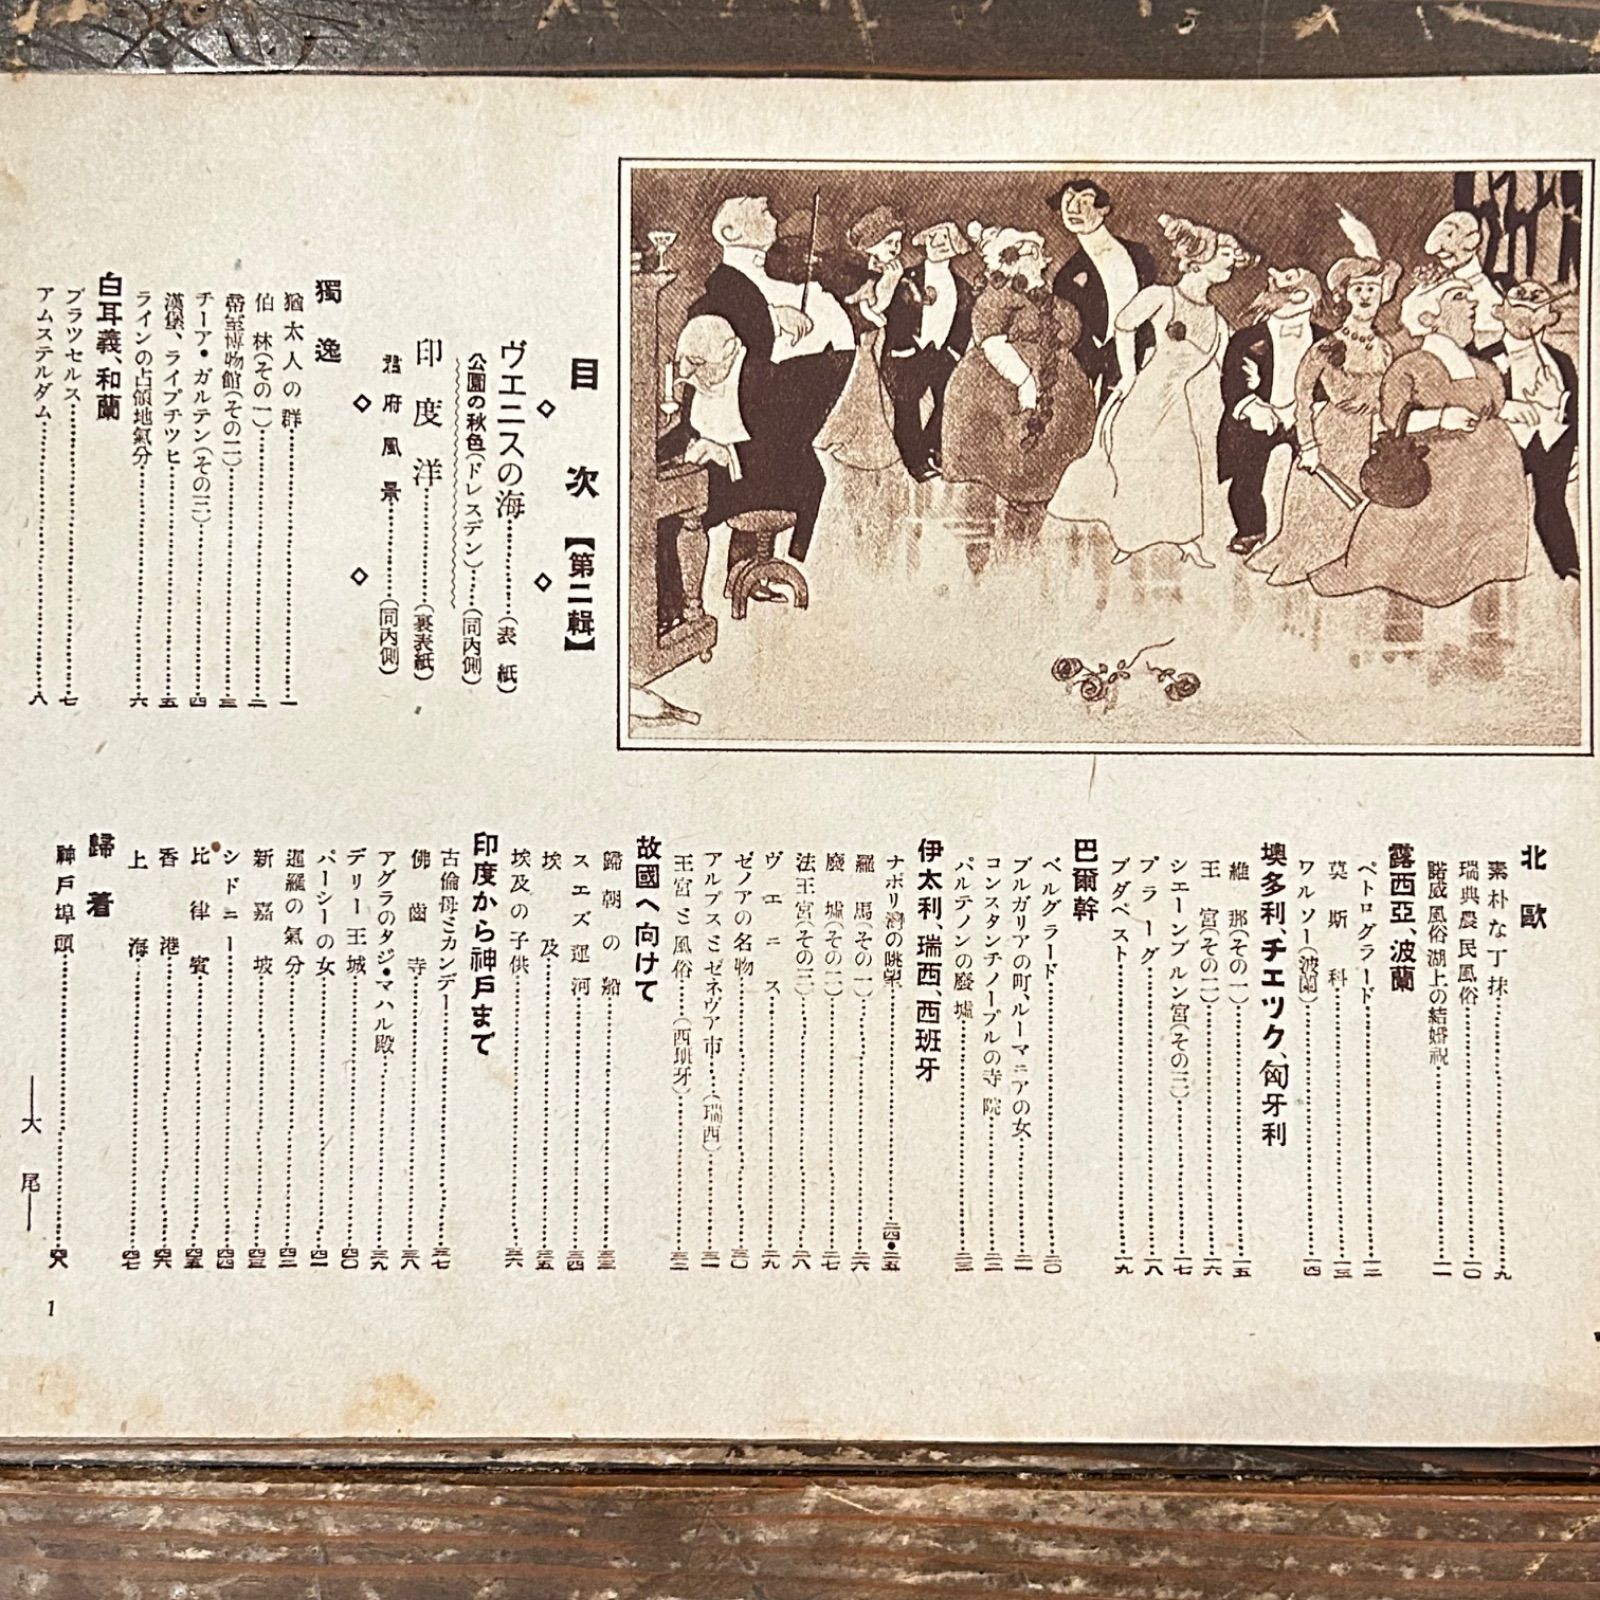 目次【第二輯】
ヴエニスの海……(表紙)
公園の秋色(ドレスデン)……(同内側)
印度洋……(裏表紙)
君府風景……(同内側)
獨逸
猶太人の群……一
伯林(その一)……二
帝室博物館(その二)……三
チーア・ガルテン(その三)……四
漢堡、ライプチツヒ……五
ラインの占領地氣分……六
白耳義、和蘭
ブラツセルス……七
アムステルダム……八
北歐
素朴な丁抹……九
瑞典農民風俗……一〇
諾威風俗湖上の結婚祝……一一
露西亞、波蘭
ペトログラード……一二
莫斯科……一三
ワルソー(波蘭)……一四
墺多利、チエツク、匈牙利
維那(その一)……一五
王宮(その二)……一六
シエーンブルン宮(その三)……一七
プラーグ……一八
ブダペスト……一九
巴爾幹
ベルグラード……二〇
ブルガリアの町、ルーマニアの女……二一
コンスタンチノープルの寺院……二二
パルテノンの廢墟……二三
伊太利、瑞西、西班牙
ナポリ灣の眺望……二四・二五
羅馬(その一)……二六
廢墟(その二)……二七
法王宮(その三)……二八
ヴエニス……二九
ゼノアの名物……三〇
アルプスミゼネヴア市……(瑞西)……三一
王宮ミ風俗……(西班牙)……三二
故國へ向けて
歸朝の船……三三
スエズ運河……三四
埃及……三五
埃及の子供……三六
印度から神戸まで
古倫母ミカンデー……三七
佛齒寺……三八
アグラのタジ・マハル殿……三九
デリー王城……四〇
パーシーの女……四一
暹羅の氣分……四二
新嘉坡……四三
シドニー……四四
比律賓……四五
香港……四六
上海……四七
歸着
神戸埠頭……四八
―大尾―
1